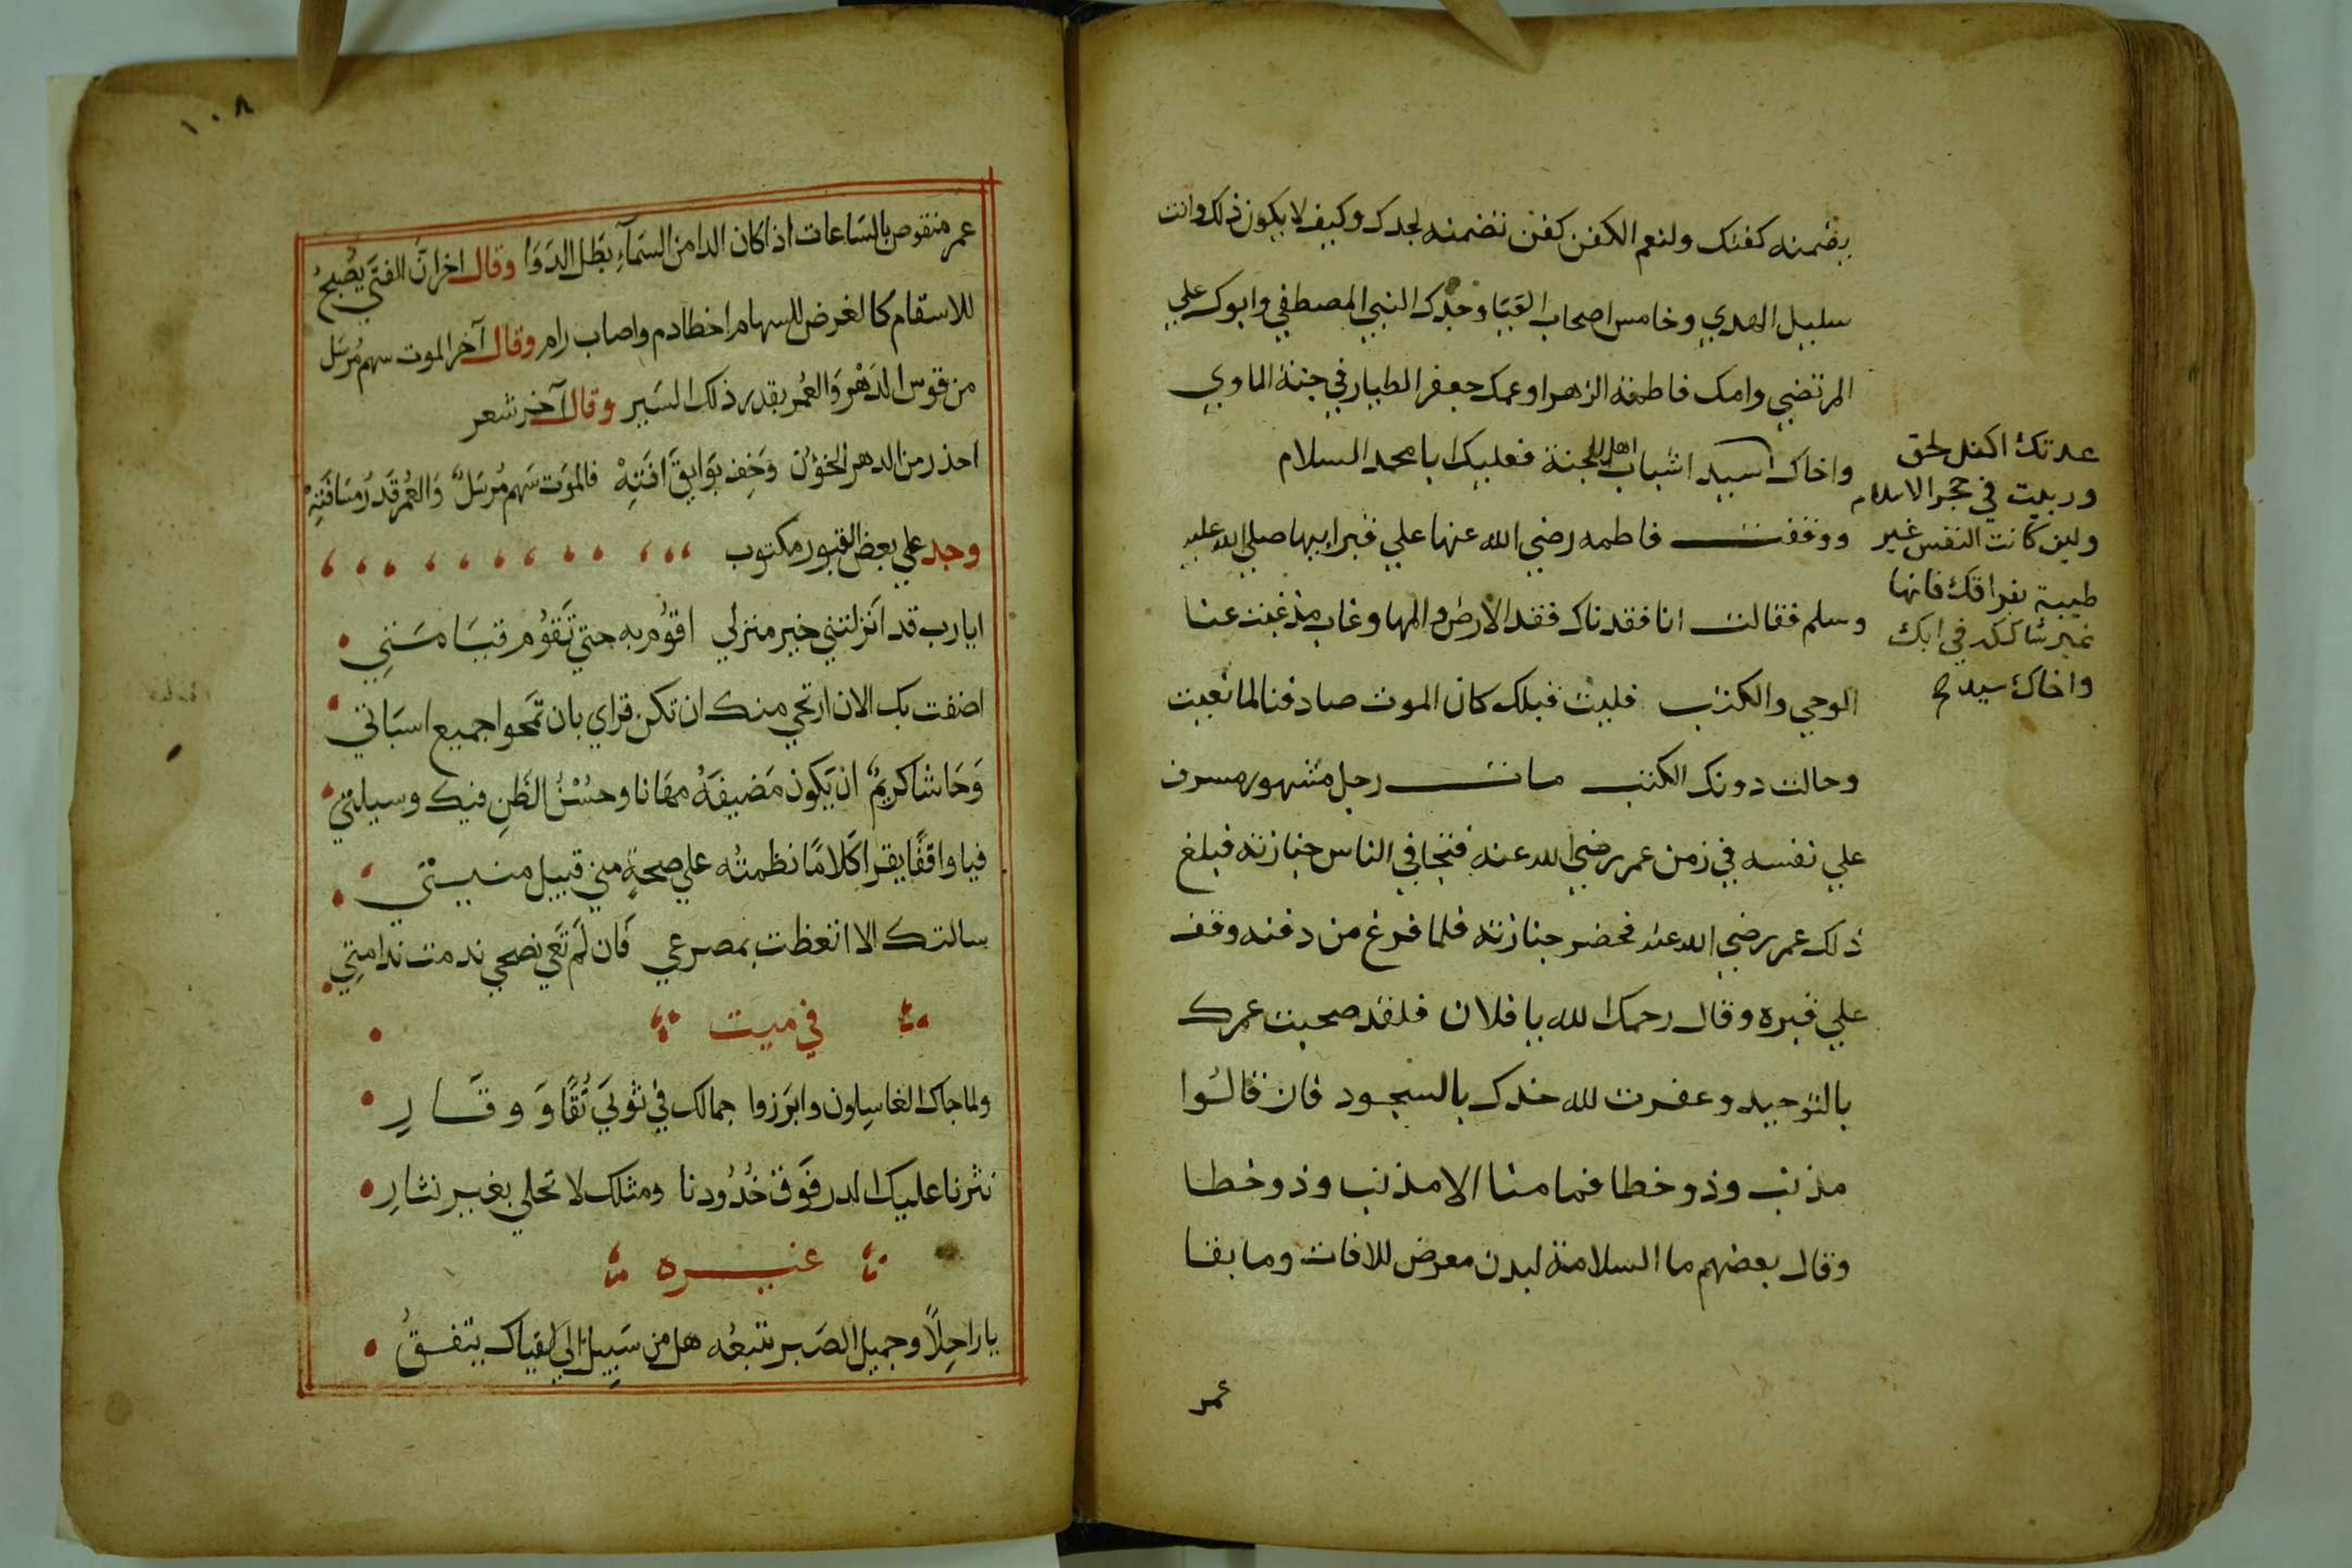 يضمنه كفنك ولنعم الكفن كفن تضمنه لجدك وكيف لا يكون ذلك وانت
سليل الهدي وخامس اصحاب القبا وجدك النبي المصطفي وابوك علي
المرتضي وامك فاطمة الزهرا وعمك جعفر الطيار في جنة الماوي
واخاك اسيد اشباب اهل الجنة فعليك يابا محمد السلام
ووقفت فاطمه رضي الله عنها علي قبر ابيها صلي الله عليه
وسلم فقالت انا فقدناك فقد الارض والمها وغاب مذ غبت عنا
الوحي والكتب فليت قبلك كان الموت صادفنا لما نعيت
وحالت دونك الكتب مات رجل مشهور مسرف
علي نفسه في زمن عمر رضي الله عنه فتجافي الناس جنازته فبلغ
ذلك عمر رضي الله عنه فحضر جنازته فلما فرغ من دفنه وقف
علي قبره وقال رحمك الله يا فلان فلقد صحبت عمرك
بالتوحيد وعفرت لله خدك بالسجود فان قالُوا
مذنب وذو خطا فما منا الا مذنب وذو خطا
وقال بعضهم ما السلامة لبدن معرض للافات وما بقا
عمر
عدتك اكف الحق
وربيت في حجر الاسلام
ولين كانت النفس غير
طيبة بفراقك فانها
غير شاكه في
واخاك سيد
١٠٨
عمر منقوص بالسَاعات اذا كان الدا من السمآءِ بطَل الدوَا وقال اخر انّ الفتَي يُصْبحُ
للاسقام كالغرض للسهام اخطا دم واصاب رام وقال آخر الموت سهم مُرسَل
من قوس الدَهْر وَالعُمر بقدر ذلك السَير وقال آخر شعر
احذر من الدهر الخوٌن وَخَفِ بوَايقَ افتِهْ فالموَت سَهم مُرسَلٌ وَالعُمر قَدرُ مسَافَتِهْ
وجد علي بعض القبور مكتوب
ايا رب قد اَنزلتني خير منزلي اقوُم به حتي تَقوُم قيَامَتي
اضفت بك الان ارتجي منك ان تكن قراي بان تمَحوا جميع اسَاتي
وَحَاشا كريمٌ ان يَكون مَضيفَهُ مهَانا وحسُنُ الظَنِ فيك وسيلتي
فيا واقفًا يقرا كَلامًا نظمتُه علي صحةٍ مني قبيل منيتي
سالتك الا اتعظت بمصرعي فَان لَم تَعي نصحي ندمت ندامتِي
في ميت
ولما جاك الغاسِلون وابرَزوا جمالك في ثوبَي تُقًا وَ وقَارِ
نثرنا عليك الدر فَوق خُدُودنا ومثلك لا تحلي بغير نثارِ
غيره
يا راحِلاً وجميل الصَبر تتبعُه هل من سَبِيل الي لقياك يتفقُ